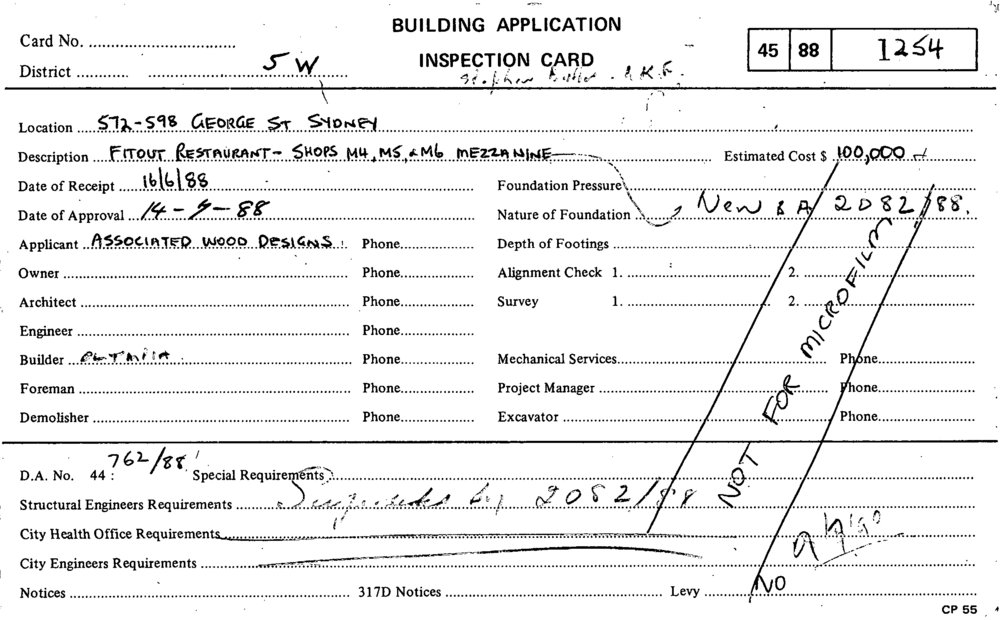 BUILDING APPLICATION
Card No.
INSPECTION CARD
45 88 1254
District 5 W
Location 572-598 GEORGE ST SYDNEY
Description FITOUT RESTAURANT- SHOPS M4, M5, & M6 MEZZANINE Estimated Cost $ 100,000
Date of Receipt 16/6/88 Foundation Pressure
Date of Approval 14-9-88 Nature of Foundation New B A 2082/88.
Applicant ASSOCIATED WOOD DESIGNS Phone Depth of Footings
Owner Phone Alignment Check 1. 2.
Architect Phone Survey 1. 2.
Engineer Phone
Builder Phone Mechanical Services Phone
Foreman Phone Project Manager Phone
Demolisher Phone Excavator Phone
NOT FOR MICROFILM
D.A. No. 44 : 762/88 Special Requirements
Structural Engineers Requirements by 2082/88
City Health Office Requirements
City Engineers Requirements
Notices 317D Notices Levy NO
CP 55